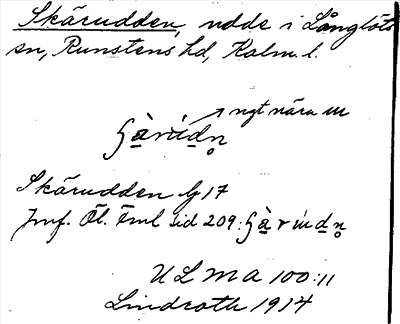 Skärudden, udde i Långlöts
sn, Runstens hd, Kalm. l.
ngt nära u
ʃà̱rùḏn̥
Skärudden G 17
Jmf. Öl. Fml sid 209: ʃà̱ruḏn̥
ULMA 100:11
Lindroth 1914